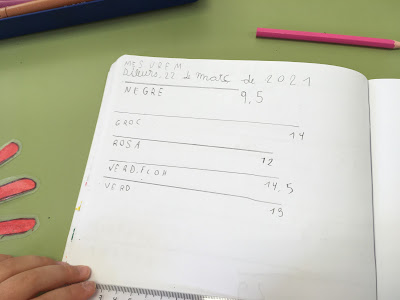 MESUREM
dilluns, 22 de març de 2021
NEGRE 9,5
GROC 14
ROSA 12
VERD FLOR 14,5
VERD 19